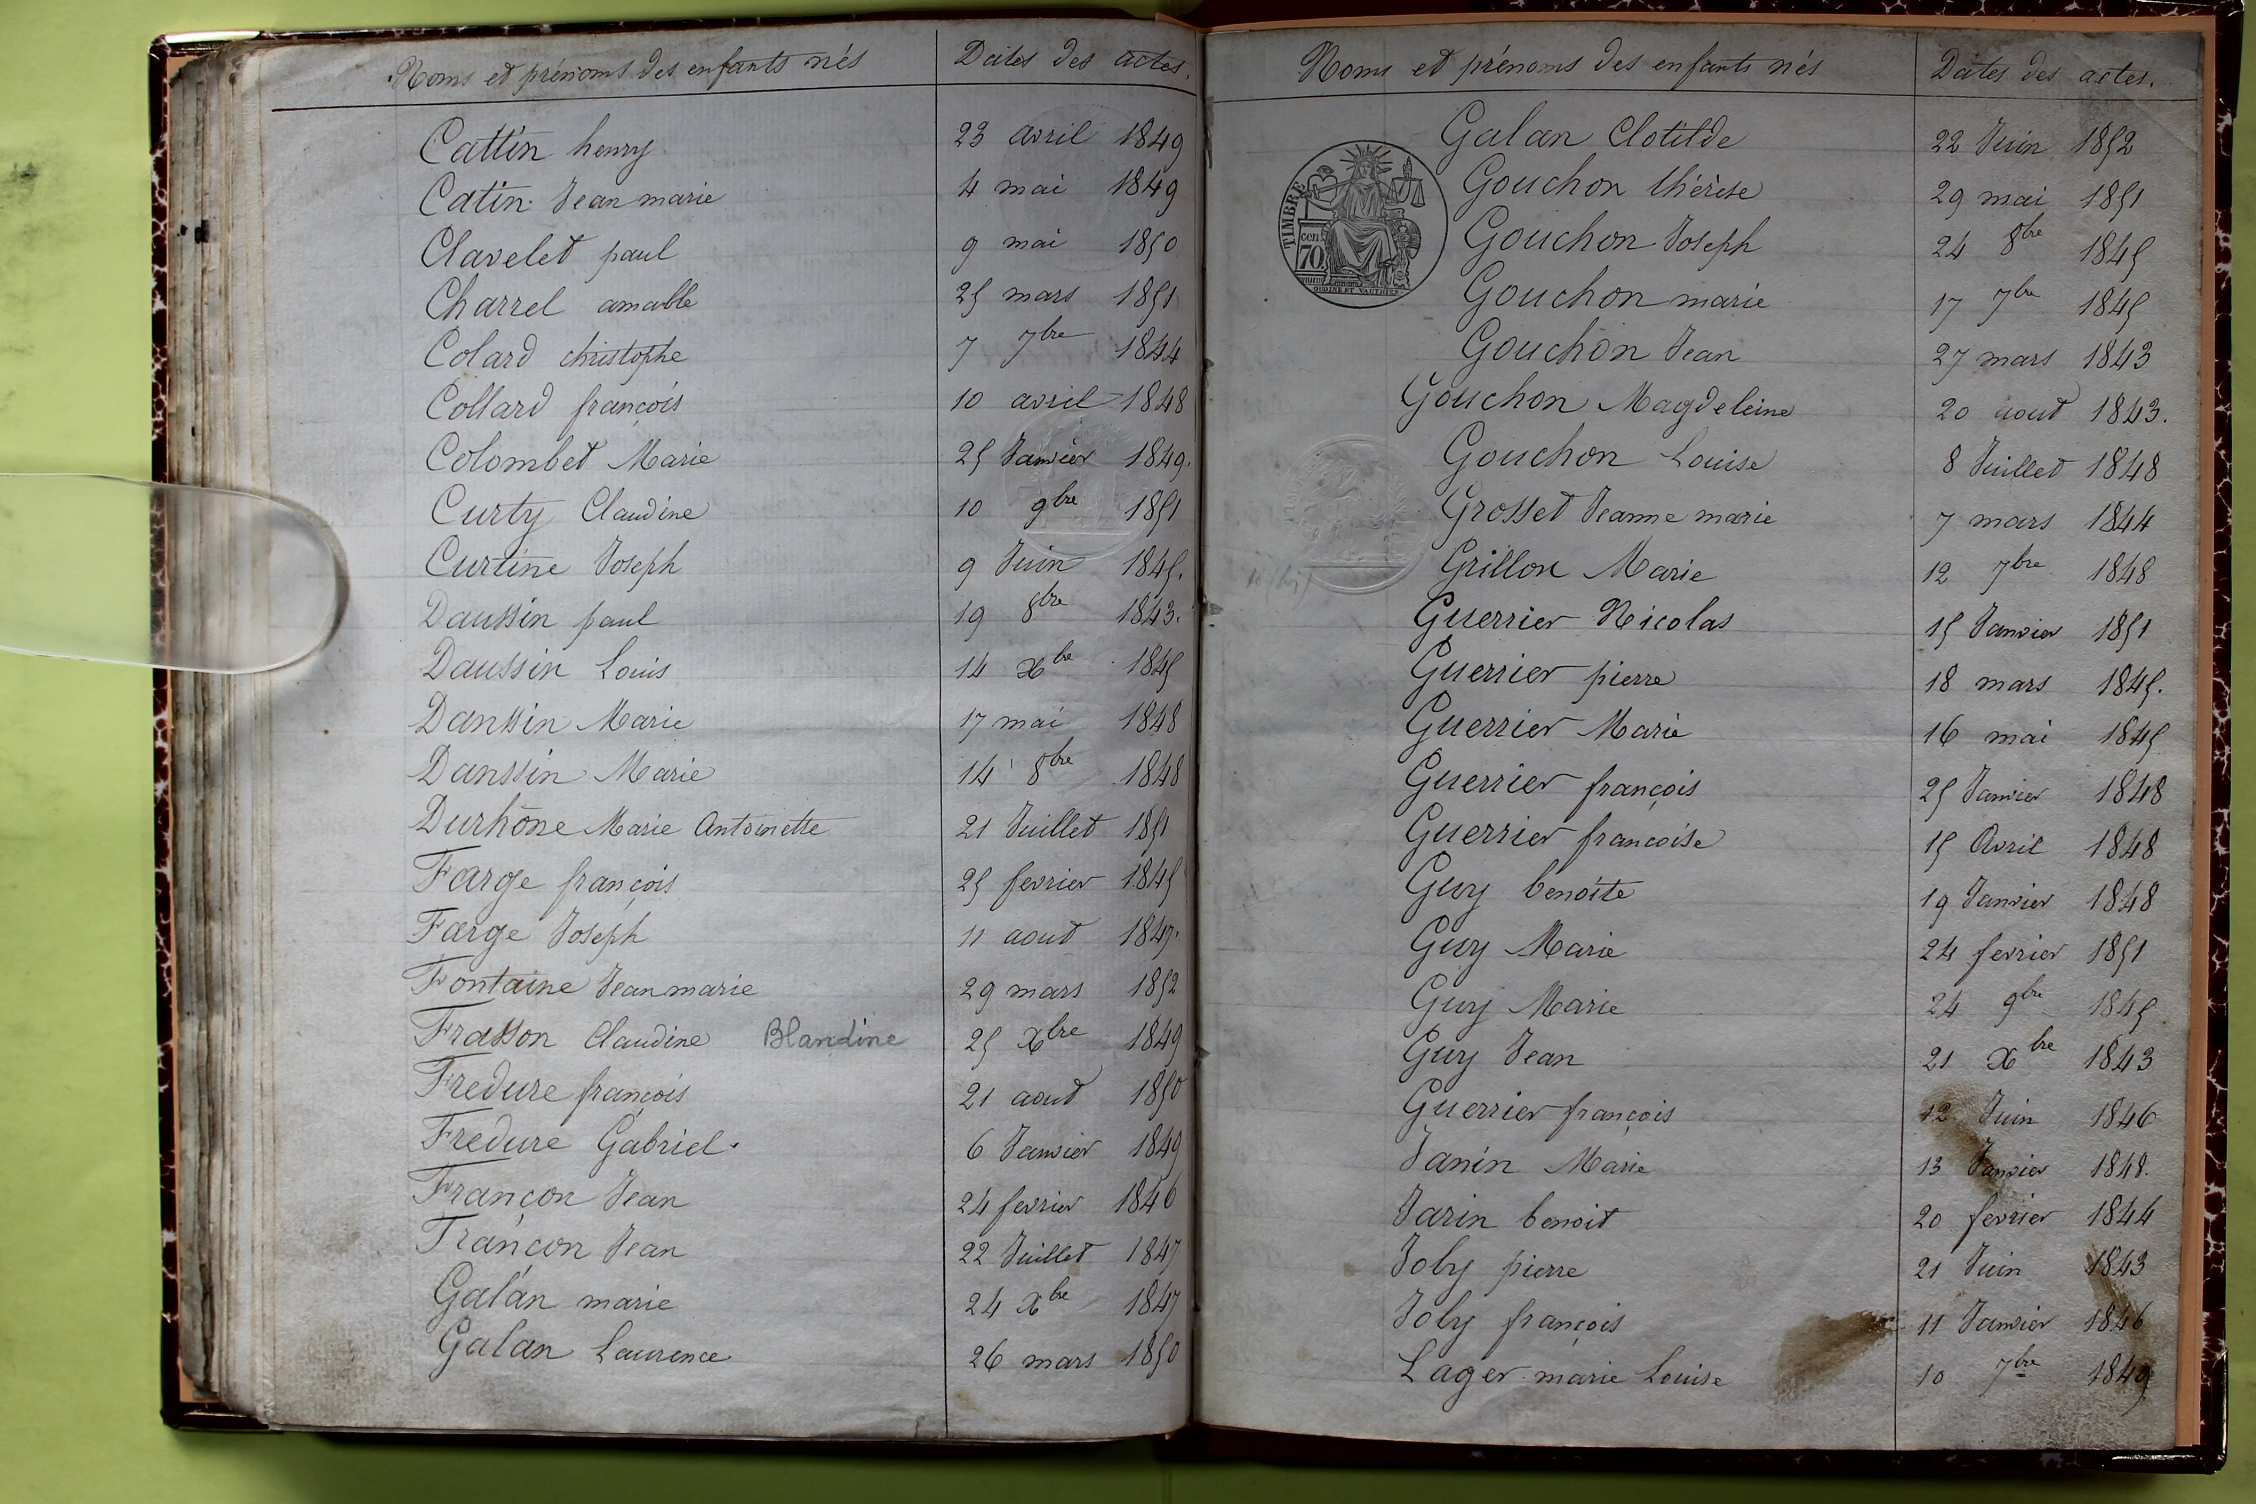 Noms et prénoms des enfants nés Dates des actes.
Cattin henry 23 avril 1849
Catin Jean marie 4 mai 1849
Clavelet paul 9 mai 1850
Charrel amable 25 mars 1851
Colard christophe 7 7bre 1844
Collard françois 10 avril 1848
Colombet Marie 25 Janvier 1849.
Curty Claudine 10 9bre 1851
Curtine Joseph 9 Juin 1845.
Daussin paul 19 8bre 1843.
Daussin Louis 14 Xbre 1845
Danssin Marie 17 mai 1848
Danssin Marie 14 8bre 1848
Durhône Marie Antoinette 21 Juillet 1851
Farge françois 25 fevrier 1845
Farge Joseph 11 aout 1847.
Fontaine Jean marie 29 mars 1852
Frasson Claudine Blandine 25 Xbre 1849
Fredure françois 21 aout 1850
Fredure Gabriel. 6 Janvier 1849
Françon Jean 24 fevrier 1846
Françon Jean 22 Juillet 1847
Galan marie 24 Xbre 1847
Galan Laurence 26 mars 1850
Noms et prénoms des enfants nés Dates des actes.
TIMBRE
cen
70
Galan Clotilde 22 Juin 1852
Gouchon thérèse 29 mai 1851
Gouchon Joseph 24 8bre 1845
Gouchon marie 17 7bre 1845
Gouchon Jean 27 mars 1843
Gouchon Magdeleine 20 aout 1843.
Gouchon Louise 8 Juillet 1848
Grosset Jeanne marie 7 mars 1844
Grillon Marie 12 7bre 1848
Guerrier Nicolas 15 Janvier 1851
Guerrier pierre 18 mars 1845.
Guerrier Marie 16 mai 1845
Guerrier françois 25 Janvier 1848
Guerrier francoise 15 Avril 1848
Guy benoite 19 Janvier 1848
Guy Marie 24 fevrier 1851
Guy Marie 24 9bre 1845
Guy Jean 21 Xbre 1843
Guerrier françois 12 Juin 1846
Janin Marie 13 Janvier 1848.
Jarin benoit 20 fevrier 1844
Joly pierre 21 Juin 1843
Joly françois 11 Janvier 1846
Lager marie Louise 10 7bre 1849